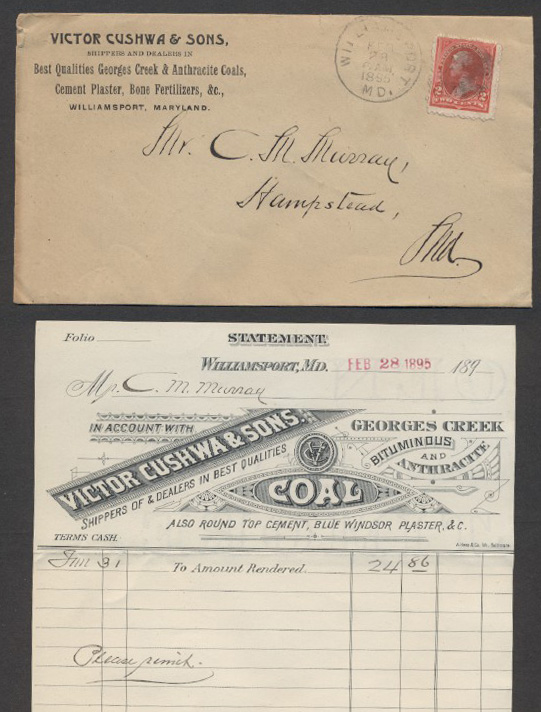 VICTOR CUSHWA & SONS,
SHIPPERS AND DEALERS IN
Best Qualities Georges Creek & Anthracite Coals,
Cement Plaster, Bone Fertilizers, &c.,
WILLIAMSPORT, MARYLAND.
WILLIAMSPORT
FEB
28
1895
MD.
2 2
TWO CENTS
Mr. C. M. Murray,
Hampstead,
Md.
Folio
STATEMENT.
WILLIAMSPORT, MD. FEB 28 1895 189
Mr. C. M. Murray
IN ACCOUNT WITH
VICTOR CUSHWA & SONS.
SHIPPERS OF & DEALERS IN BEST QUALITIES
GEORGES CREEK
BITUMINOUS
AND
ANTHRACITE
COAL
ALSO ROUND TOP CEMENT, BLUE WINDSOR PLASTER, &C.
TERMS CASH.
Jan 31 To Amount Rendered. 24 86
Please remit.